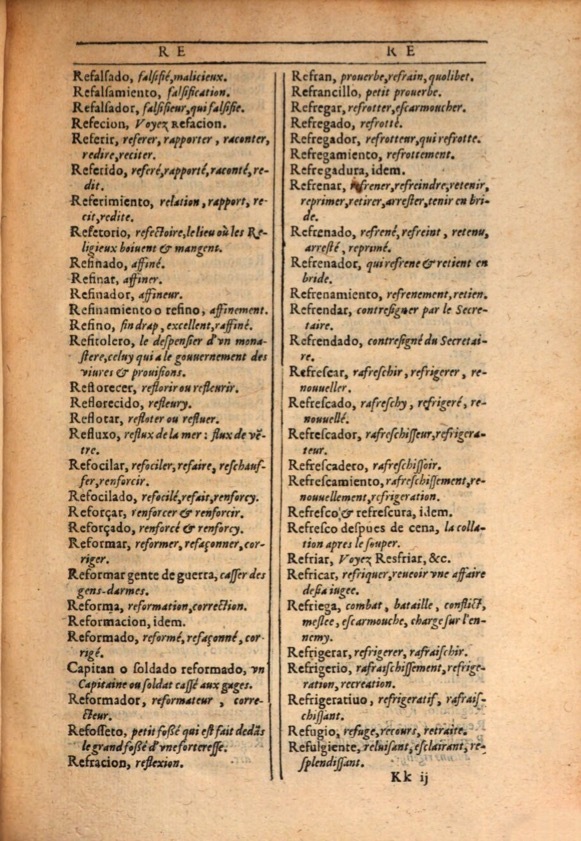 RE
Refalsado, falsifié, malicieux.
Refalsamiento, falsification.
Refalsador, falsifieur, qui falsifie.
Refecion, Voyez Refacion.
Referir, referer, rapporter, raconter,
redire, reciter.
Referido, referé, rapporté, raconté, re-
dit.
Referimiento, relation, rapport, re-
cit, redite.
Refetorio, refectoire, le lieu où les Re-
ligieux boiuent & mangent.
Refinado, affiné.
Refinar, affiner.
Refinador, affineur.
Refinamiento o refino, affinement.
Refino, fin drap, excellent, raffiné.
Refitolero, le despensier d'vn mona-
stere, celuy qui a le gouuernement des
viures & prouisions.
Reflorecer, reflorir ou refleurir.
Reflorecido, refleury.
Reflotar, refloter ou refluer.
Refluxo, reflux de la mer: flux de vẽ-
tre.
Refocilar, refociler, refaire, reschauf-
fer, renforcir.
Refocilado, refocilé, refait, renforcy.
Reforçar, renforcer & renforcir.
Reforçado, renforcé & renforcy.
Reformar, reformer, refaçonner, cor-
riger.
Reformar gente de guerra, casser des
gens-darmes.
Reforma, reformation, correction.
Reformacion, idem.
Reformado, reformé, refaçonné, cor-
rigé.
Capitan o soldado reformado, vn
Capitaine ou soldat cassé aux gages.
Reformador, reformateur, corre-
cteur.
Refosseto, petit fossé qui est fait dedãs
le grand fossé d'vne forteresse.
Refracion, reflexion.
RE
Refran, prouerbe, refrain, quolibet.
Refrancillo, petit prouerbe.
Refregar, refrotter, escarmoucher.
Refregado, refrotté.
Refregador, refrotteur, qui refrotte.
Refregamiento, refrottement.
Refregadura, idem.
Refrenar, refrener, refreindre, retenir,
reprimer, retirer, arrester, tenir en bri-
de.
Refrenado, refrené, refreint, retenu,
arresté, reprimé.
Refrenador, qui refrene & retient en
bride.
Refrenamiento, refrenement, retien.
Refrendar, contresigner par le Secre-
taire.
Refrendado, contresigné du Secretai-
re.
Refrescar, rafreschir, refrigerer, re-
nouueller.
Refrescado, rafreschy, refrigeré, re-
nouuellé.
Refrescador, rafreschisseur, refrigera-
teur.
Refrescadero, rafreschissoir.
Refrescamiento, rafreschissement, re-
nouuellement, refrigeration.
Refresco & refrescura, idem.
Refresco despues de cena, la colla-
tion apres le souper.
Refriar, Voyez Resfriar, &c.
Refricar, refriquer, reuoir vne affaire
desia iugee.
Refriega, combat, bataille, conflict,
meslee, escarmouche, charge sur l'en-
nemy.
Refrigerar, refrigerer, rafraischir.
Refrigerio, rafraischissement, refrige-
ration, recreation.
Refrigeratiuo, refrigeratif, rafrais-
chissant.
Refugio, refuge, recours, retraite.
Refulgiente, reluisant, esclairant, re-
splendissant.
Kk ij